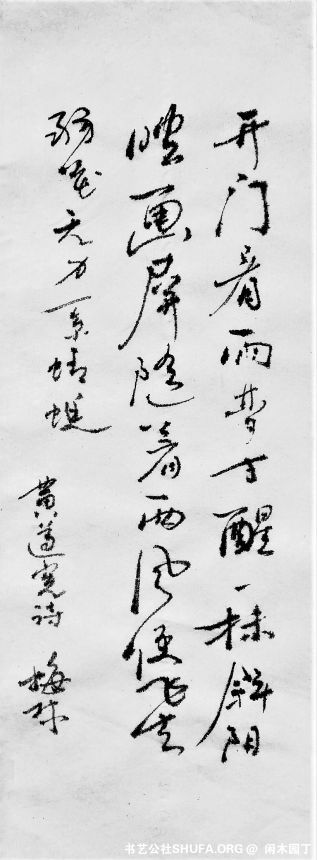 开门看雨梦才醒一抹斜阳
映画屏随着西风便飞去
弱花无力系蜻蜓
黄遵宪诗 梅
书艺公社SHUFA.ORG @ 闲木园丁